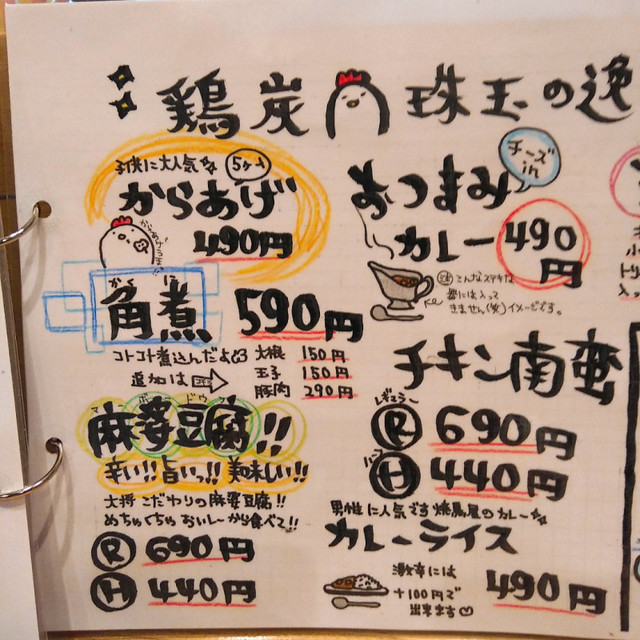 鶏炭 珠玉の逸
子供に大人気 5ヶ入
からあげ
490円
からあげうまっ!
かく に
角煮 590円
コトコト煮込んだよ
追加は
大根 150円
玉子 150円
豚肉 290円
マーボードウフ
麻婆豆腐!!
辛い!! 旨いっ!! 美味しい!!
大将こだわりの麻婆豆腐!!
めちゃくちゃおいしーから食べて!!
R 690円
H 440円
チーズin
おつまみ
カレー 490円
注 こんなステキな
器には入って
きません(笑)イメージです。
チキン南蛮
レギュラー
R 690円
ハーフ
H 440円
男性に人気です 焼鳥屋のカレー
カレーライス
激辛には
+100円で
出来ます
490円